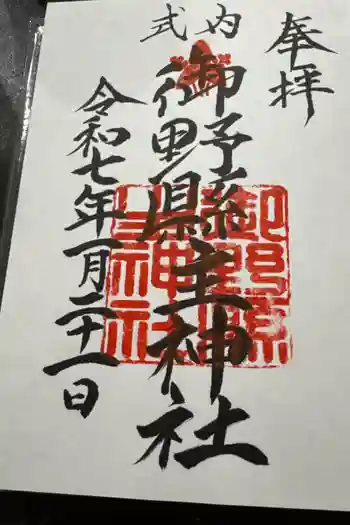 奉拝
式内
御野県主神社
令和七年一月二十一日
御野縣
主神社